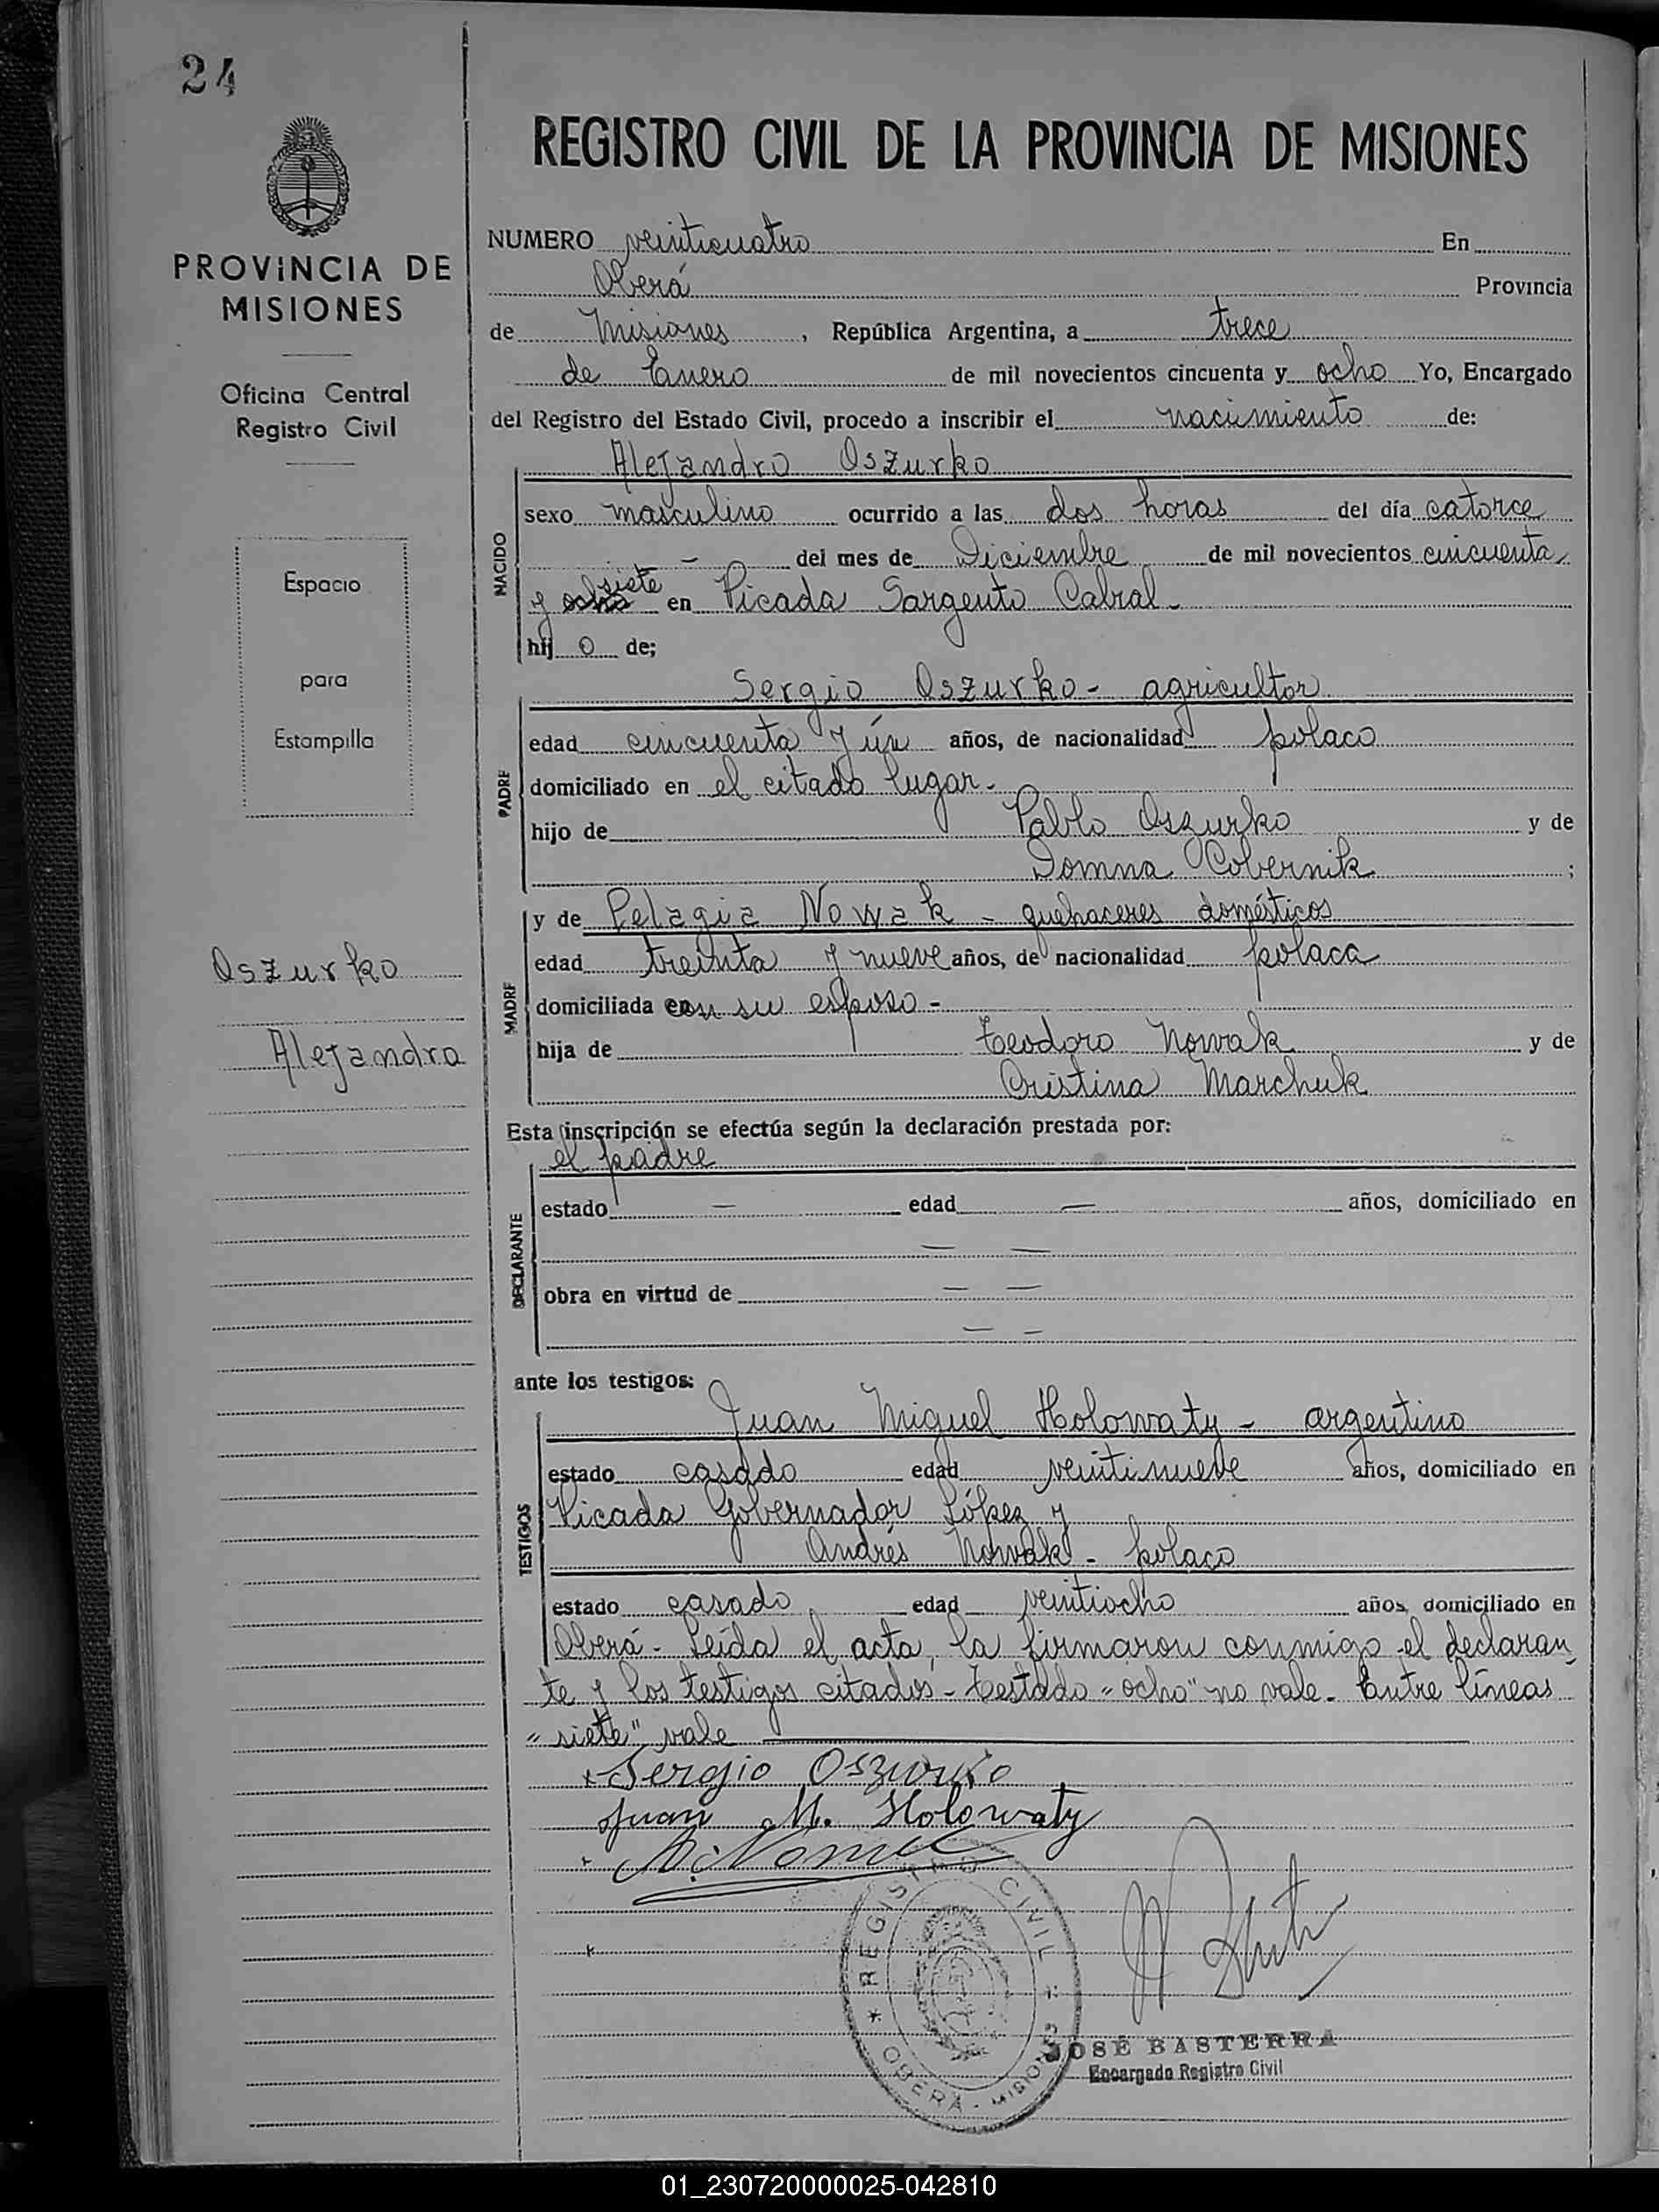 24
PROVINCIA DE
MISIONES
Oficina Central
Registro Civil
Espacio
para
Estampilla
Oszurko
Alejandro
REGISTRO CIVIL DE LA PROVINCIA DE MISIONES
NUMERO veinticuatro En
Oberá Provincia
de Misiones, República Argentina, a trece
de Enero de mil novecientos cincuenta y ocho Yo, Encargado
del Registro del Estado Civil, procedo a inscribir el nacimiento de:
NACIDO
Alejandro Oszurko
sexo masculino ocurrido a las dos horas del día catorce
- del mes de Diciembre de mil novecientos cincuenta
y ocho siete en Picada Sargento Cabral-
hijo de;
PADRE
Sergio Oszurko - agricultor
edad cincuenta y ún años, de nacionalidad polaco
domiciliado en el citado lugar-
hijo de Pablo Oszurko y de
Domna Cobernik ;
MADRE
y de Pelagia Nowak - quehaceres domésticos
edad treinta y nueve años, de nacionalidad polaca
domiciliada con su esposo -
hija de Teodoro Nowak y de
Cristina Marchuk
Esta inscripción se efectúa según la declaración prestada por:
DECLARANTE
el padre
estado — edad — años, domiciliado en
— —
obra en virtud de — —
— —
ante los testigos:
TESTIGOS
Juan Miguel Holowaty - argentino
estado casado edad veintinueve años, domiciliado en
Picada Gobernador López y
Andrés Nowak - polaco
estado casado edad veintiocho años, domiciliado en
Oberá - Leída el acta, la firmaron conmigo el declaran
te y los testigos citados - Testado "ocho" no vale - Entre líneas
"siete" vale
Sergio Oszurko
Juan M. Holowaty
REGISTRO CIVIL
OBERÁ - MISIONES
JOSÉ BASTERRA
Encargado Registro Civil
01_230720000025-042810